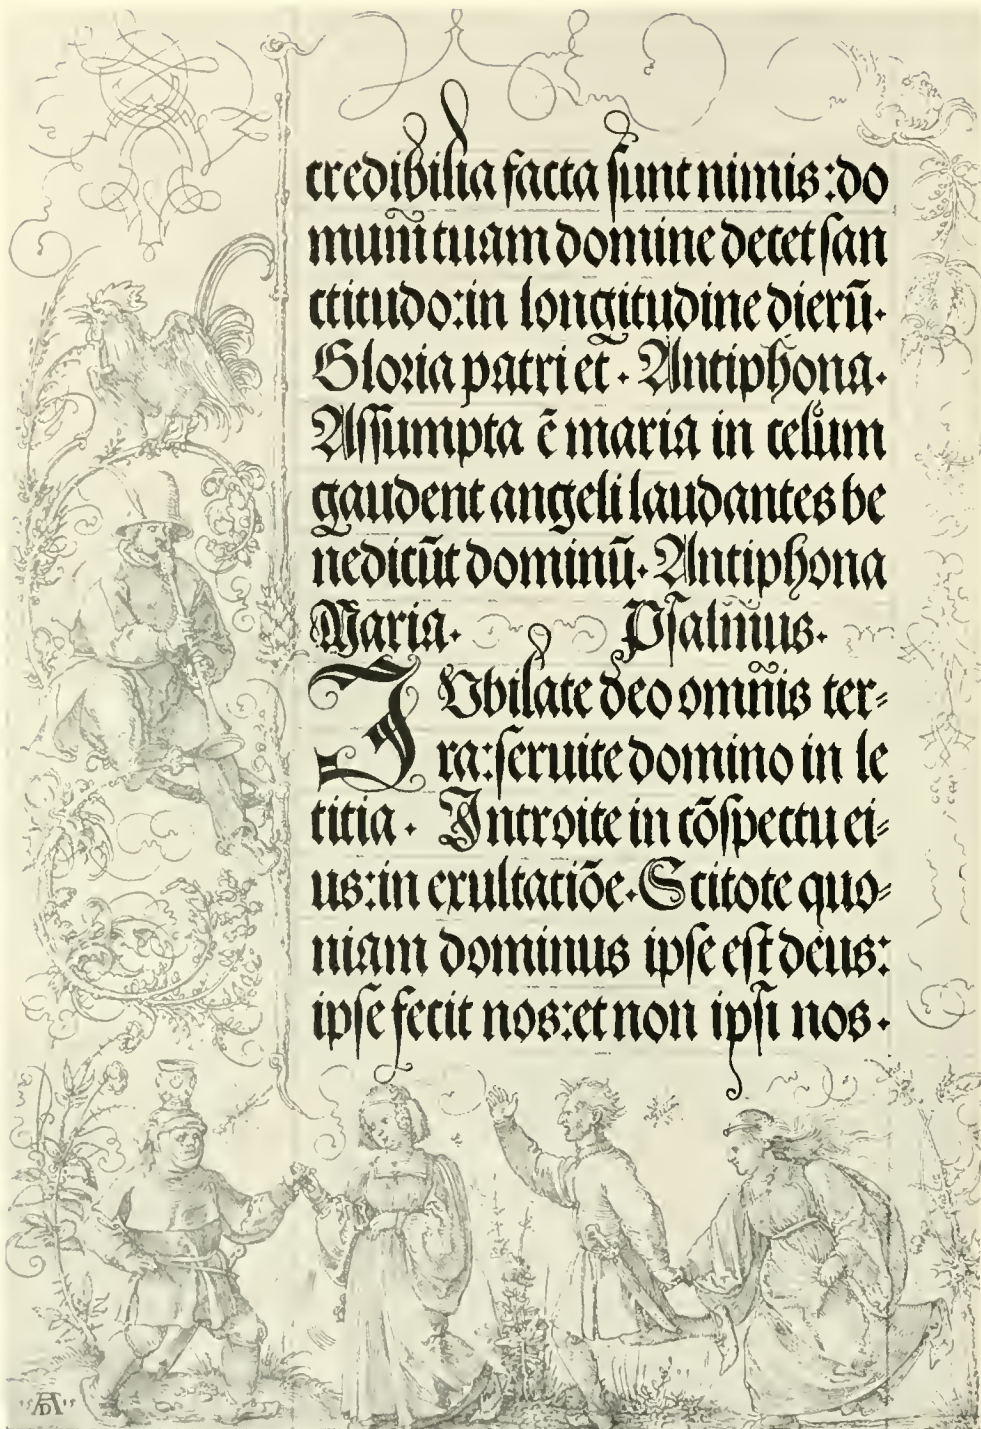 credibilia facta sunt nimis: do
mum̃ tuam domine decet san
ctitudo: in longitudine dierū.
Gloria patri et̃. Antiphona.
Assumpta ē maria in celum
gaudent angeli laudantes be
nedicūt dominū. Antiphona
Maria. Psalmus.
IVbilate deo omñis ter=
ra: seruite domino in le
titia. Introite in cōspectu ei=
us: in exultatiōe. Scitote quo=
niam dominus ipse est deus:
ipse fecit nos: et non ipsi nos.
AD